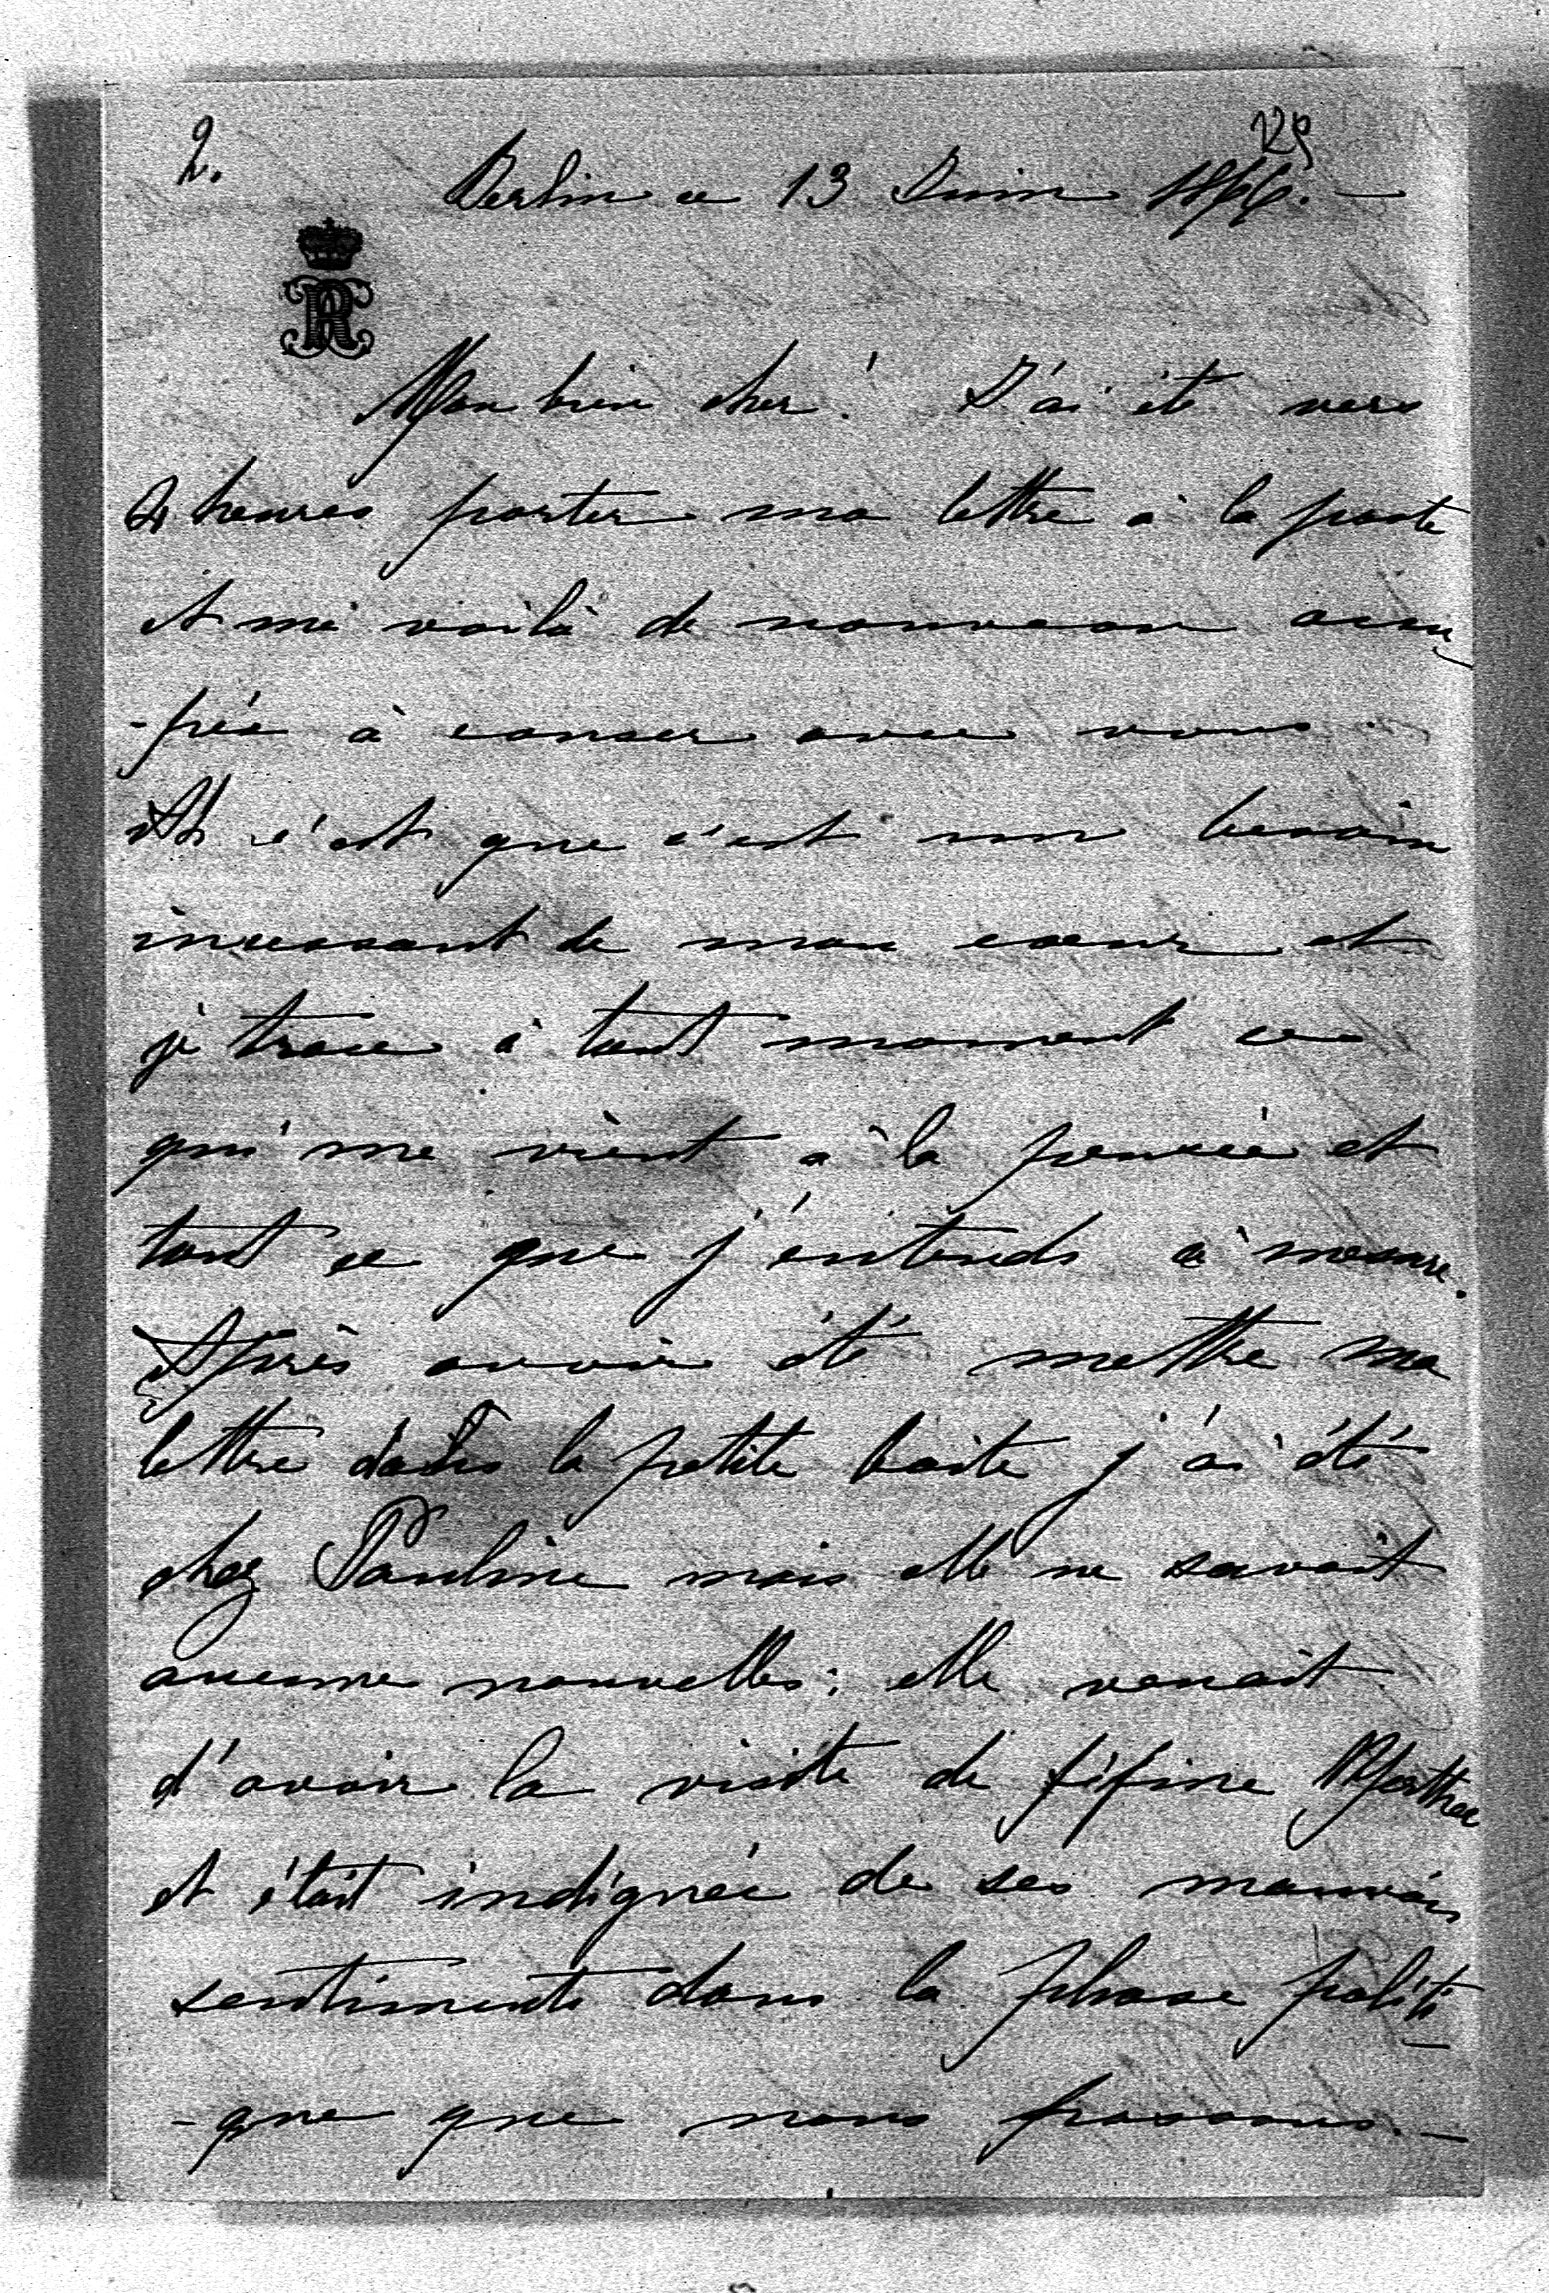 2.
Berlin ce 13 Juin 1866. —
Mon bien cher! J'ai été vers
4 heures porter ma lettre à la poste
et me voilà de nouveau occu
-pée à causer avec vous.
Ah c'est que c'est un besoin
incessant de mon coeur et
je trace à tout moment ce
qui me vient à la pensée et
tout ce que j'entends à mesure.
Après avoir été mettre ma
lettre dans la petite boite j'ai été
chez Pauline mais elle ne savait
aucune nouvelles; elle venait
d'avoir la visite de fifine
et était indignée de ses mauvais
sentiments dans la phase politi
-que que nous passons. —